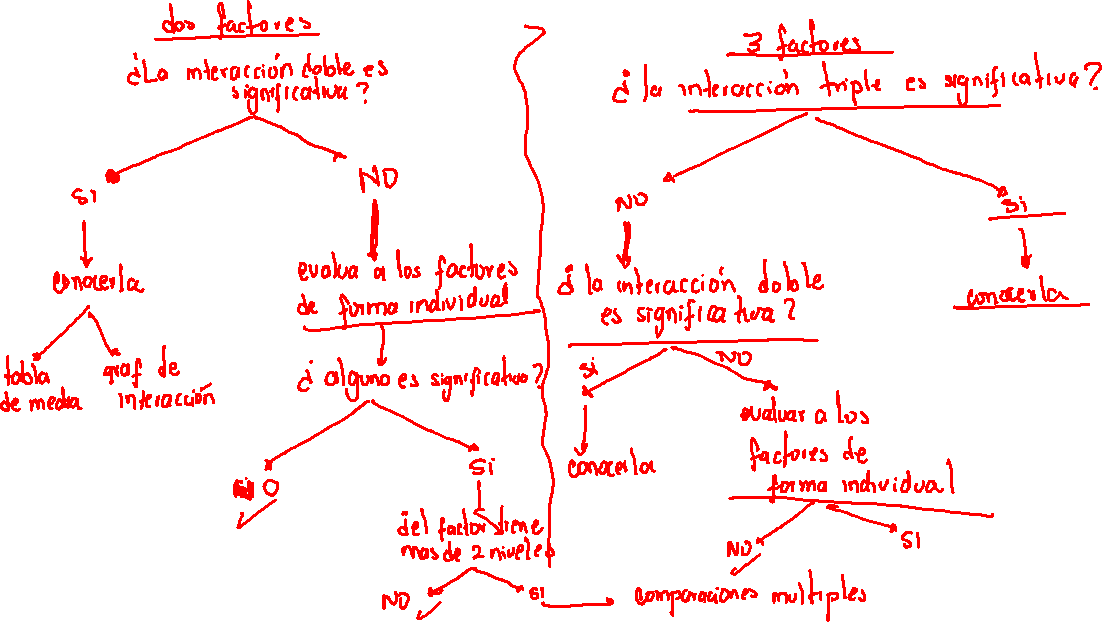 dos factores
¿La interacción doble es
significativa?
Si
NO
conocerla
tabla
de media
graf de
interacción
evalua a los factores
de forma individual
¿ alguno es significativo?
NO
Si
¿el factor tiene
mas de 2 niveles
NO
SI
comparaciones multiples
3 factores
¿ la interacción triple es significativa?
NO
Si
conocerla
¿ la interacción doble
es significativa?
Si
NO
conocerla
evaluar a los
factores de
forma individual
NO
SI